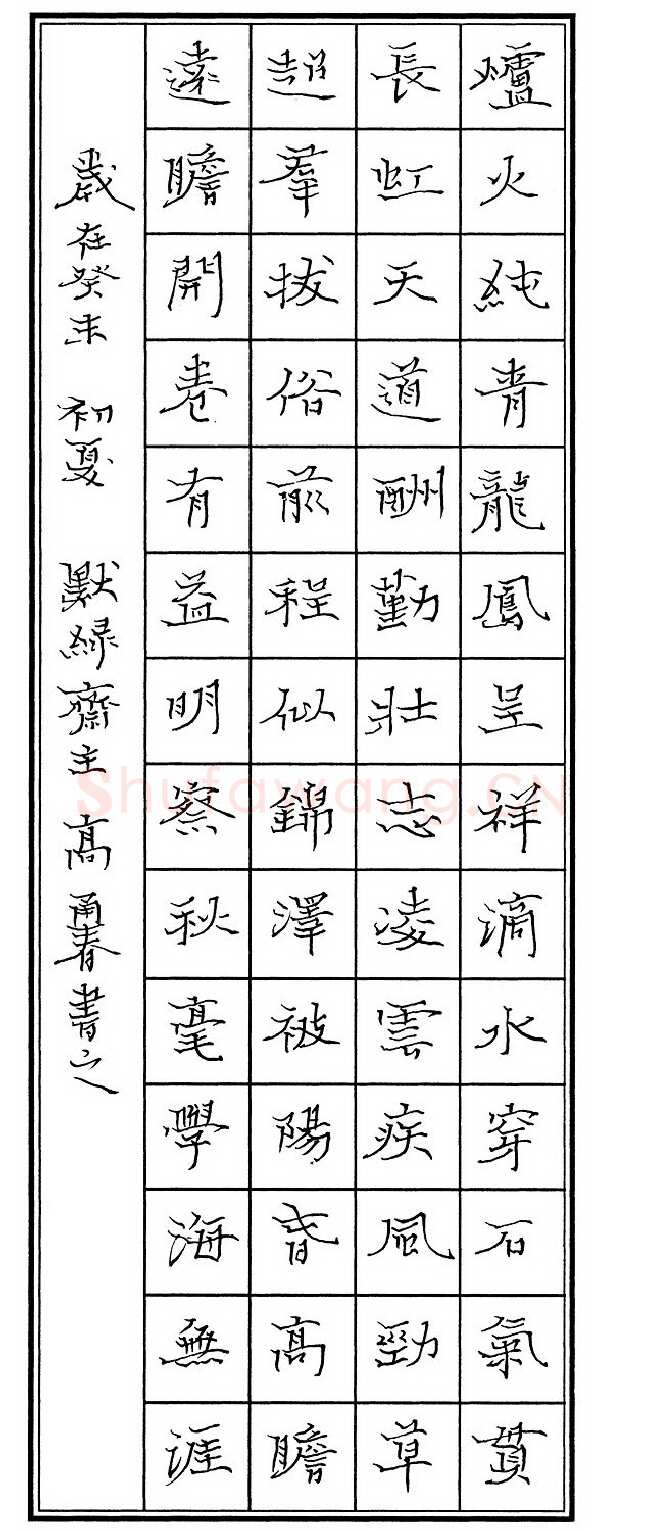 爐火純青龍鳳呈祥滴水穿石氣貫
長虹天道酬勤壯志凌雲疾風勁草
超羣拔俗前程似錦澤被陽春高瞻
遠瞻開卷有益明察秋毫學海無涯
歲在癸未 初夏 默緑齋主 高勇春書之
Shufawang.CN